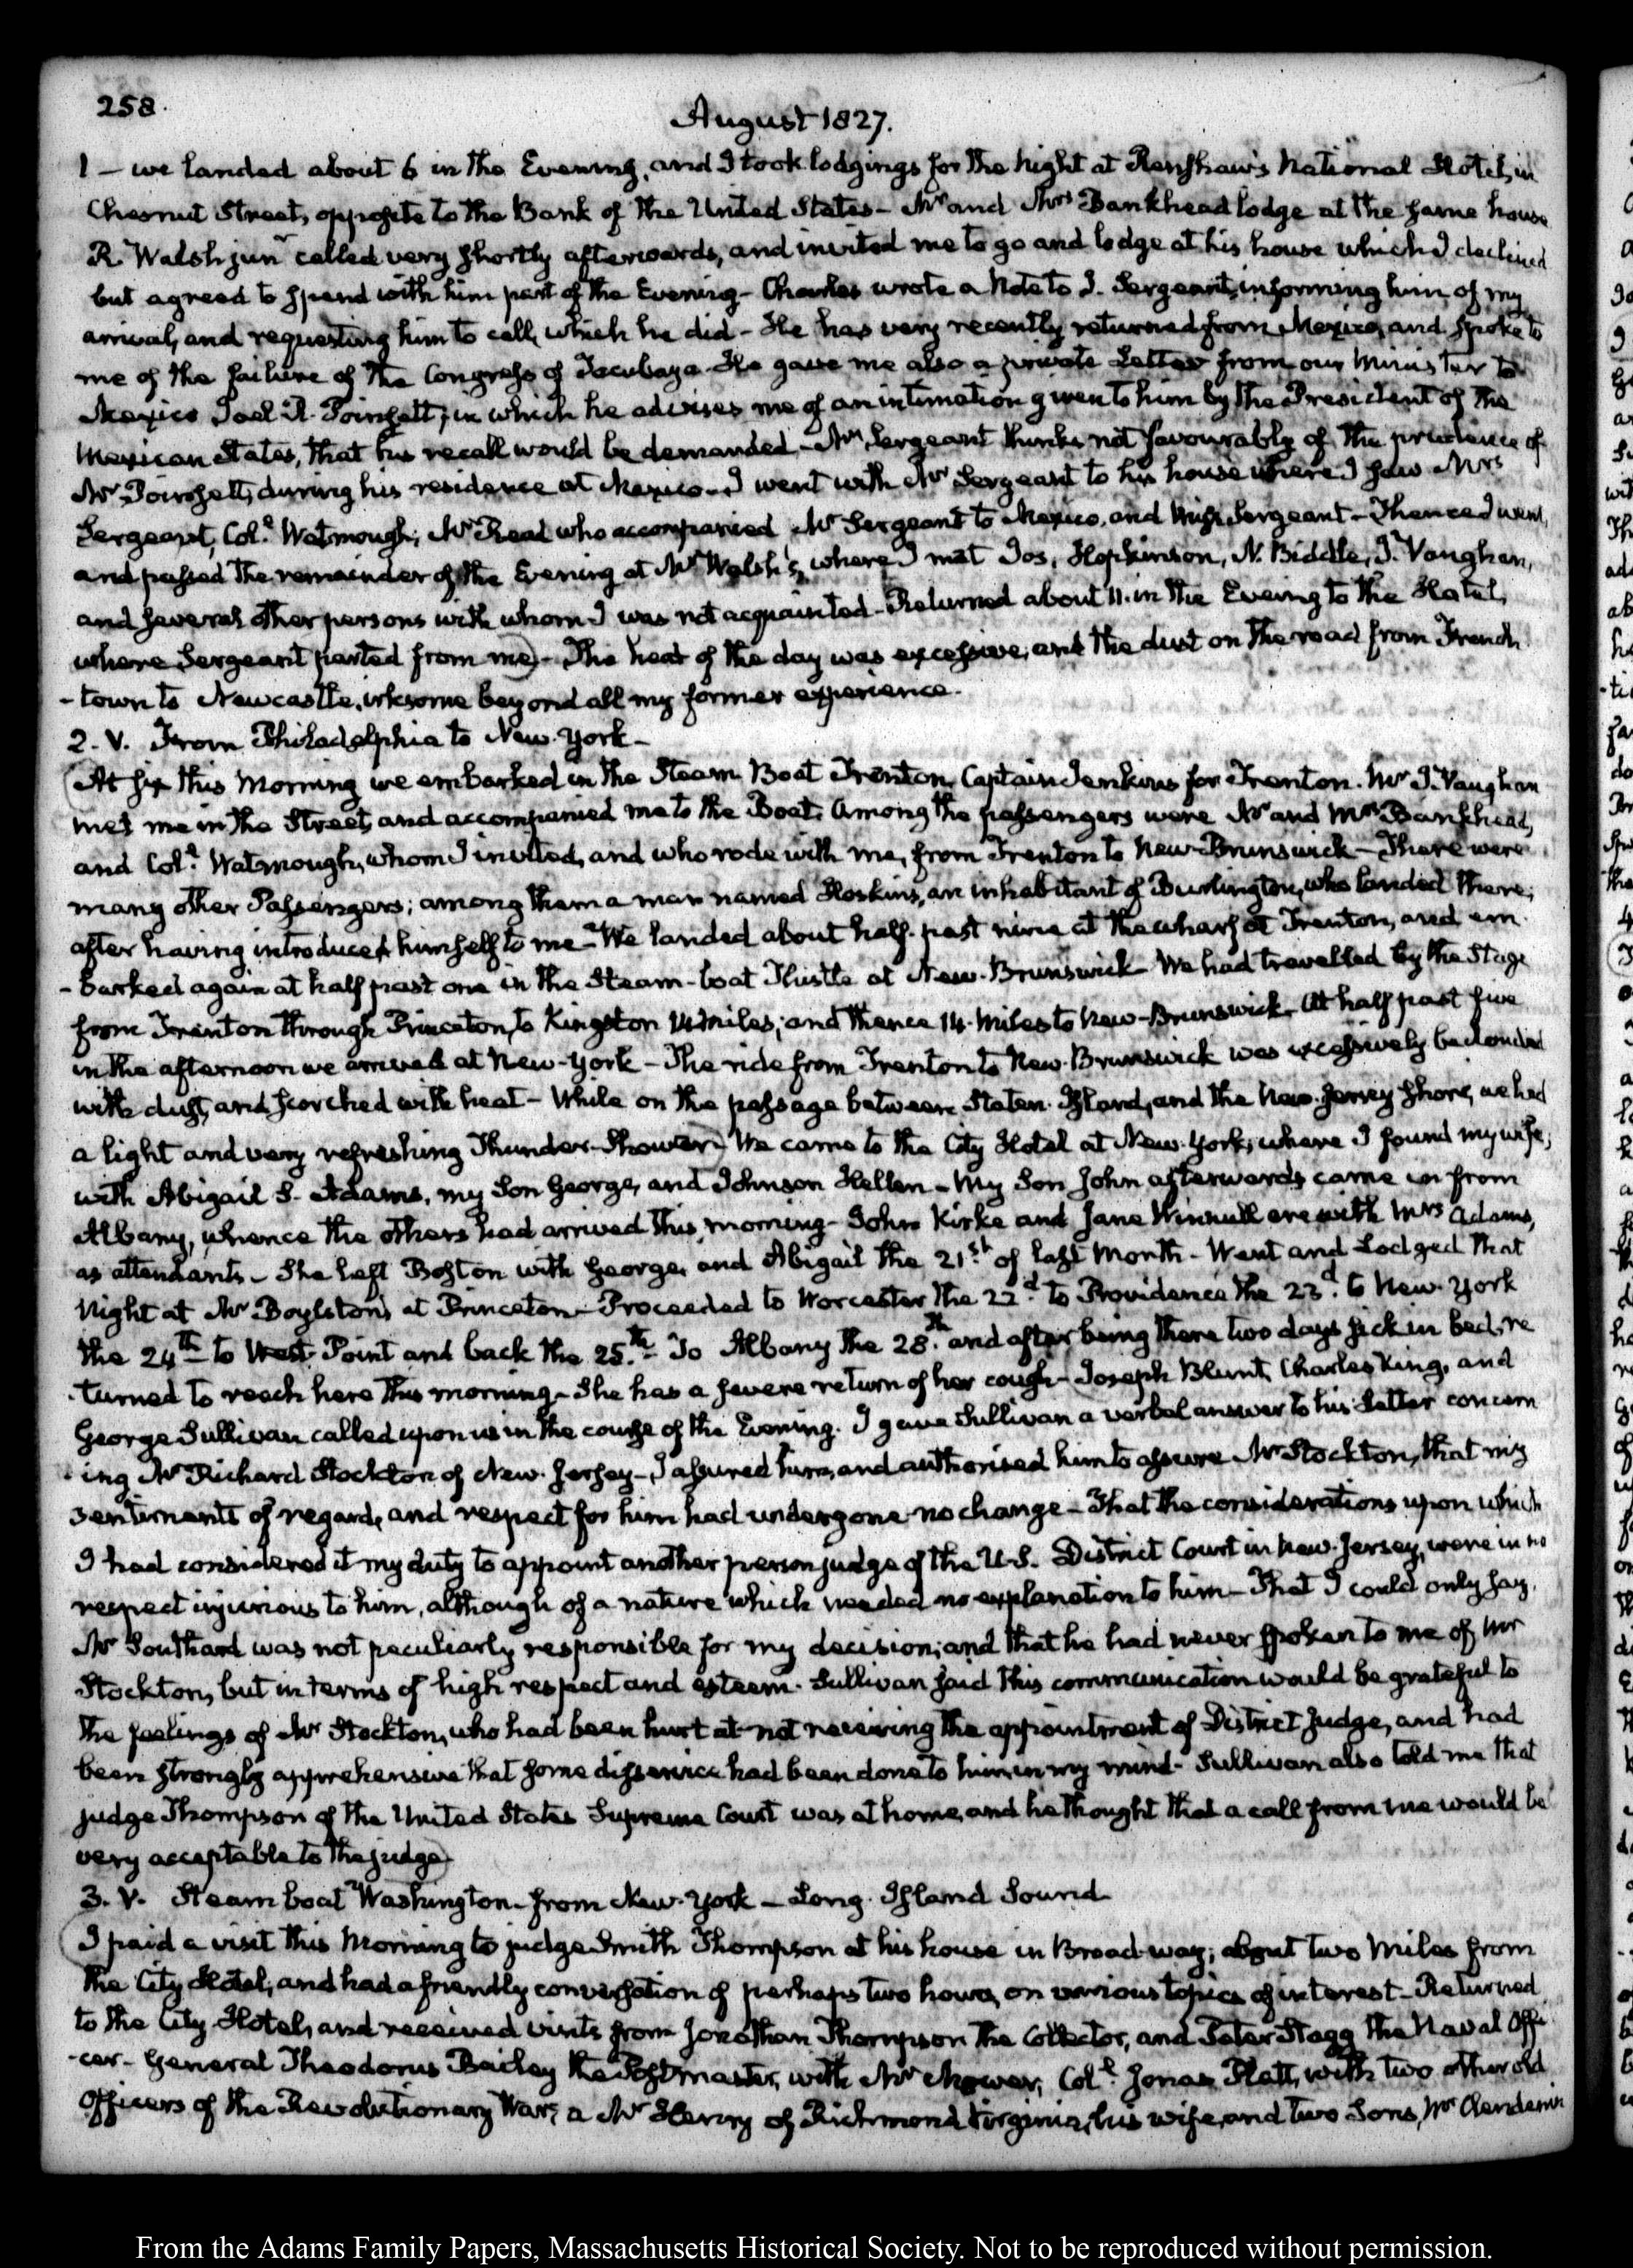 258.
August 1827.
1 – we landed about 6 in the Evening, and I took lodgings for the night at Renshaw's National Hotel, in
Chesnut Street, opposite to the Bank of the United States – Mr and Mrs Bankhead lodge at the same house
R. Walsh junr called very shortly afterwards, and invited me to go and lodge at his house which I declined
but agreed to spend with him part of the Evening – Charles wrote a Note to J. Sergeant, informing him of my
arrival, and requesting him to call, which he did – He has very recently returned from Mexico, and spoke to
me of the failure of the Congress of Tacubaya. He gave me also a private Letter from our Minister to
Mexico Joel R. Poinsett, in which he advises me of an intimation given to him by the President of the
Mexican States, that his recall would be demanded – Mr Sergeant thinks not favourably of the prudence of
Mr Poinsett, during his residence at Mexico – I went with Mr Sergeant to his house where I saw Mrs
Sergeant, Coll. Watmough, Mr Read who accompanied Mr Sergeant to Mexico, and Miss Sergeant – Thence I went,
and passed the remainder of the Evening at Mr Walsh's, where I met Jos. Hopkinson, N. Biddle, J. Vaughan,
and several other persons with whom I was not acquainted – Returned about 11. in the Eveing to the Hotel,
where Sergeant parted from me) – The heat of the day was excessive, and the dust on the road from French
- town to Newcastle, irksome beyond all my former experience.
2. V. From Philadelphia to New-York –
(At six this Morning we embarked in the Steam Boat Trenton, Captain Jenkins for Trenton. Mr J. Vaughan
met me in the Street, and accompanied me to the Boat. Among the passengers were Mr and Mrs Bankhead,
and Coll. Watmough, whom I invited, and who rode with me, from Trenton to New-Brunswick – There were
many other Passengers; among them a man named Hoskins, an inhabitant of Burlington, who landed there;
after having introduced himself to me – We landed about half-past nine at the wharf at Trenton, and em
- barked again at half past one in the Steam-boat Thistle at New-Brunswick – We had travelled by the Stage
from Trenton through Princeton, to Kingston 14 miles; and thence 14. miles to New-Brunswick. At half past five
in the afternoon we arrived at New-York – The ride from Trenton to New-Brunswick was excessively beclouded
with dust, and scorched with heat – While on the passage between Staten-Island, and the New-Jersey shore, we had
a light and very refreshing Thunder-Shower – We came to the City Hotel at New-York, where I found my wife,
with Abigail S. Adams, my Son George, and Johnson Hellen – My Son John afterwards came in from
Albany, whence the others had arrived this morning – John Kirke and Jane Winnull are with Mrs Adams,
as attendants – She left Boston with George, and Abigail the 21st of last Month – Went and Lodged that
Night at Mr Boylston's at Princeton – Proceeded to Worcester the 22d to Providence the 23d. to New-York
the 24th – to West-Point and back the 25th – To Albany the 28th and after being there two days sick in bed, re
- turned to reach here this morning – She has a severe return of her cough – Joseph Blunt, Charles King, and
George Sullivan called upon us in the course of the Evening. I gave Sullivan a verbal answer to his Letter concern
- ing Mr Richard Stockton of New-Jersey – I assured him, and authorised him to assure Mr Stockton, that my
sentiments of regard, and respect for him had undergone no change – That the considerations upon which
I had considered it my duty to appoint another person judge of the U.S. District Court in New-Jersey, were in no
respect injurious to him, although of a nature which needed no explanation to him – That I could only say,
Mr Southard was not peculiarly responsible for my decision; and that he had never spoken to me of Mr
Stockton, but in terms of high respect and esteem. Sullivan said this communication would be grateful to
the feelings of Mr Stockton, who had been hurt at not receiving the appointment of District judge, and had
been strongly apprehensive that some disservice had been done to him in my mind – Sullivan also told me that
judge Thompson of the United States Supreme Court was at home, and he thought that a call from me would be
very acceptable to the judge)
3. V. Steam boat Washington – from New-York – Long-Island Sound.
(I paid a visit this Morning to judge Smith Thompson at his house in Broad-way, about two miles from
the City Hotel, and had a friendly conversation of perhaps two hours, on various topics of interest – Returned
to the City Hotel, and received visits from Jonathan Thompson the Collector, and Peter Stagg the Naval Offi
- cer – General Theodorus Bailey the Postmaster, with Mr Mower, Coll. Jonas Platt, with two other old
Officers of the Revolutionary War; a Mr Henry of Richmond Virginia, his wife, and two Sons, Mr Clendenin
From the Adams Family Papers, Massachusetts Historical Society. Not to be reproduced without permission.